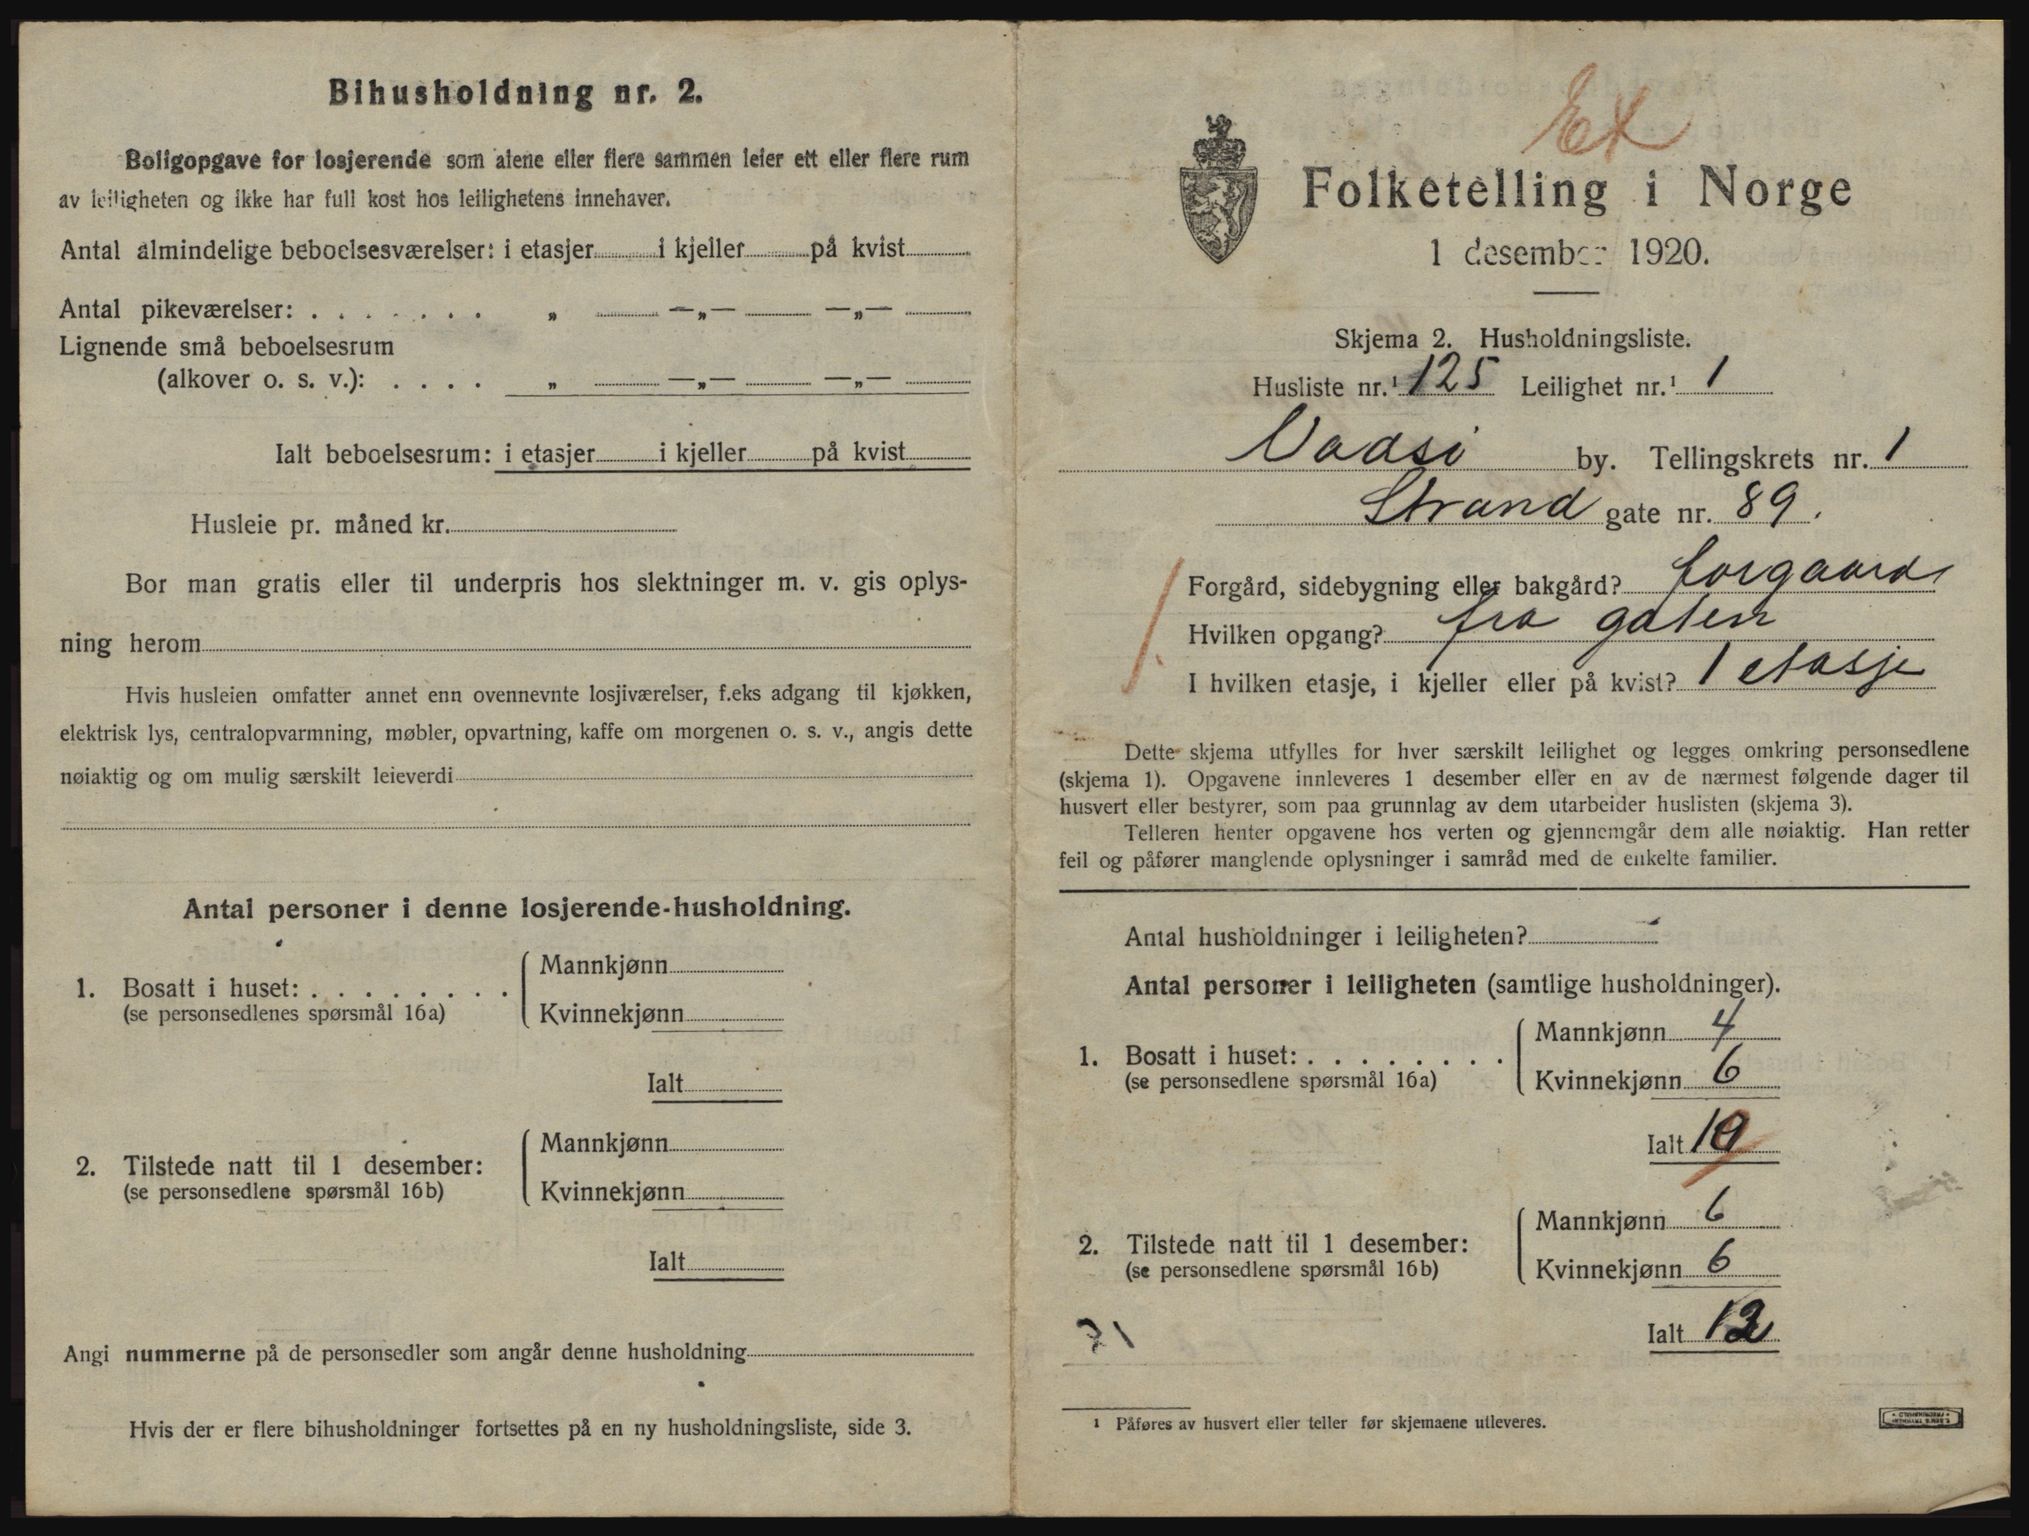 Bihusholdning nr. 2.
Boligopgave for losjerende som alene eller flere sammen leier ett eller flere rum
av leiligheten og ikke har full kost hos leilighetens innehaver.
Antal almindelige beboelsesværelser: i etasjer i kjeller på kvist
Antal pikeværelser: . . . . . . . „ —„— —„—
Lignende små beboelsesrum
(alkover o. s. v.): . . . . „ —„— —„—
Ialt beboelsesrum: i etasjer i kjeller på kvist
Husleie pr. måned kr.
Bor man gratis eller til underpris hos slektninger m. v. gis oplys-
ning herom
Hvis husleien omfatter annet enn ovennevnte losjiværelser, f.eks adgang til kjøkken,
elektrisk lys, centralopvarmning, møbler, opvartning, kaffe om morgenen o. s. v., angis dette
nøiaktig og om mulig særskilt leieverdi
Antal personer i denne losjerende-husholdning.
1. Bosatt i huset: . . . . . . . .
(se personsedlenes spørsmål 16a)
Mannkjønn
Kvinnekjønn
Ialt
2. Tilstede natt til 1 desember:
(se personsedlene spørsmål 16b)
Mannkjønn
Kvinnekjønn
Ialt
Angi nummerne på de personsedler som angår denne husholdning
Hvis der er flere bihusholdninger fortsettes på en ny husholdningsliste, side 3.
Folketelling i Norge
1 desember 1920.
Skjema 2. Husholdningsliste.
Husliste nr.¹ 125 Leilighet nr.¹ 1
Vadsö by. Tellingskrets nr. 1
Strand gate nr. 89.
Forgård, sidebygning eller bakgård? forgaard
Hvilken opgang? fra gaten
I hvilken etasje, i kjeller eller på kvist? 1 etasje
Dette skjema utfylles for hver særskilt leilighet og legges omkring personsedlene
(skjema 1). Opgavene innleveres 1 desember eller en av de nærmest følgende dager til
husvert eller bestyrer, som paa grunnlag av dem utarbeider huslisten (skjema 3).
Telleren henter opgavene hos verten og gjennemgår dem alle nøiaktig. Han retter
feil og påfører manglende oplysninger i samråd med de enkelte familier.
Antal husholdninger i leiligheten?
Antal personer i leiligheten (samtlige husholdninger).
1. Bosatt i huset: . . . . . . . .
(se personsedlene spørsmål 16a)
Mannkjønn 4
Kvinnekjønn 6
Ialt 10
2. Tilstede natt til 1 desember:
(se personsedlene spørsmål 16b)
Mannkjønn 6
Kvinnekjønn 6
Ialt 12
¹ Påføres av husvert eller teller før skjemaene utleveres.